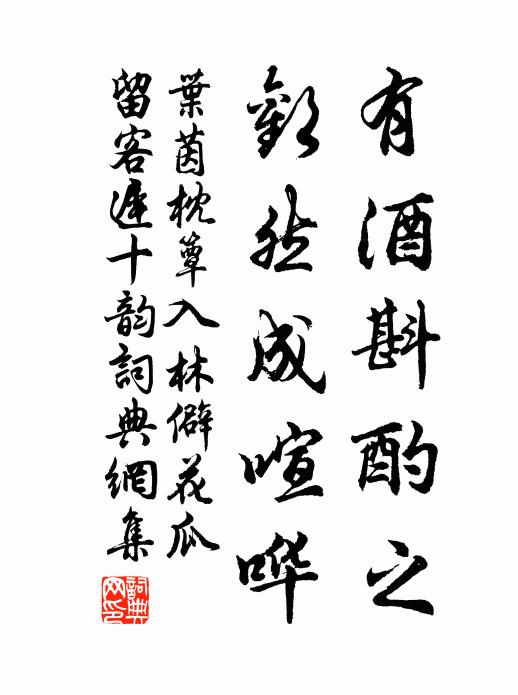 有酒斟酌之
歡然成喧哗
葉茵枕簟入林僻花瓜
留客遲十韵詞典網集
詞典
网印